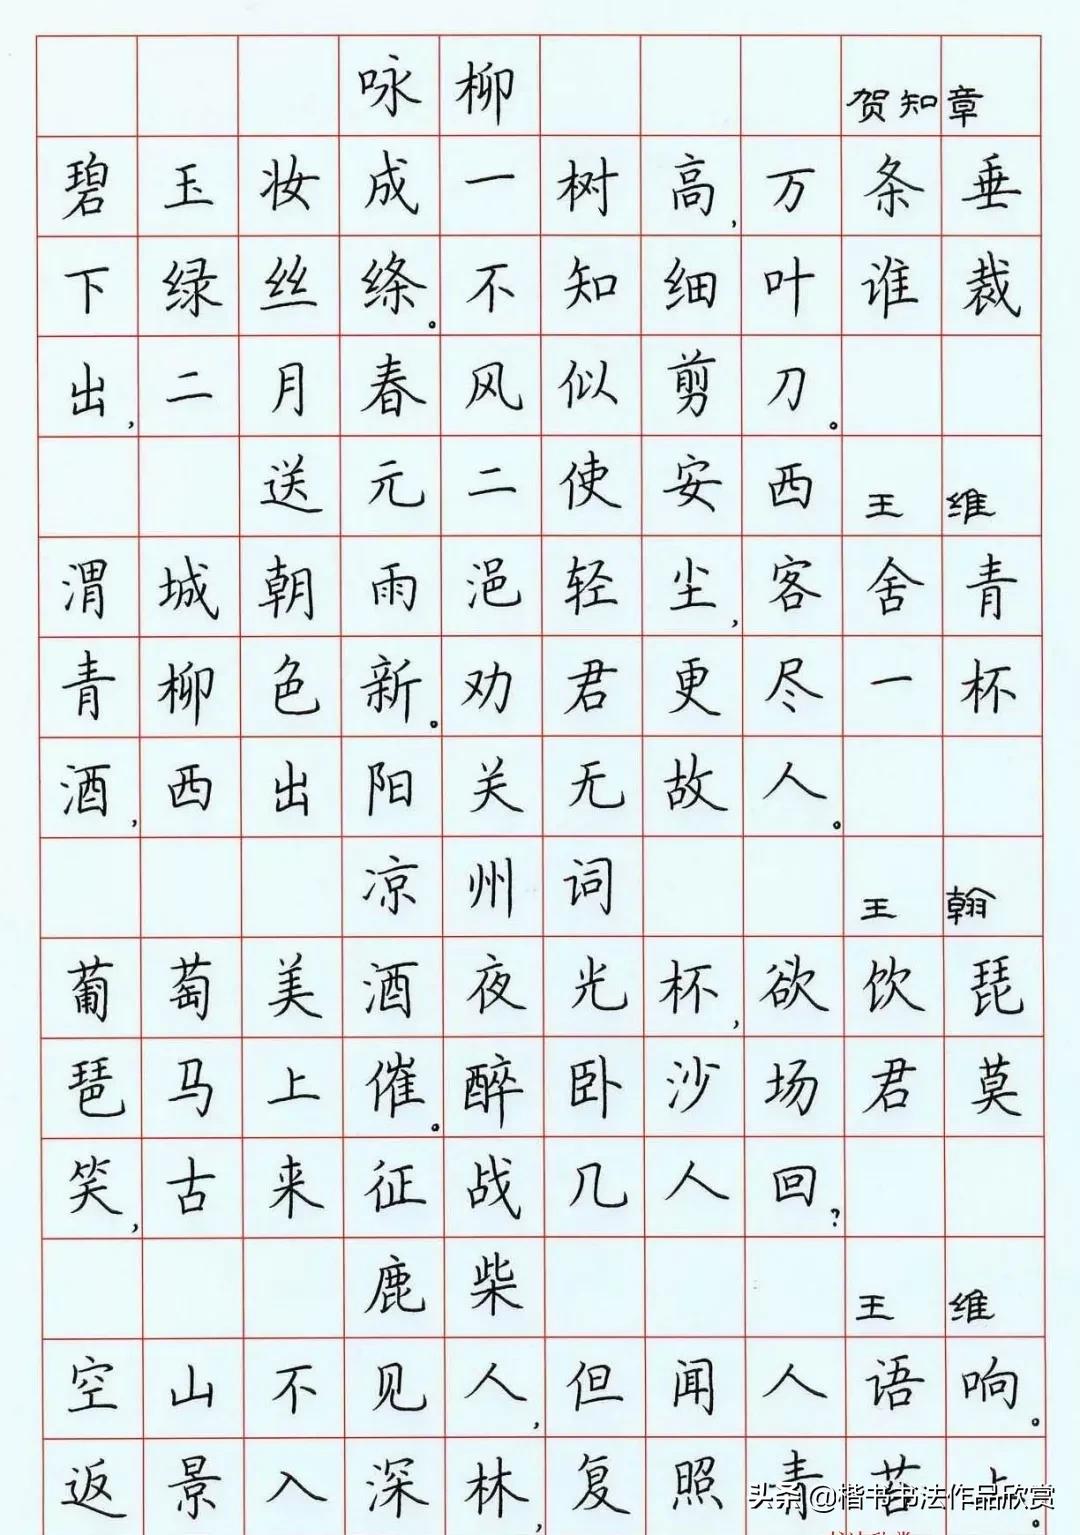 咏柳 贺知章
碧玉妆成一树高,万条垂
下绿丝绦。不知细叶谁裁
出,二月春风似剪刀。
送元二使安西 王维
渭城朝雨浥轻尘,客舍青
青柳色新。劝君更尽一杯
酒,西出阳关无故人。
凉州词 王翰
葡萄美酒夜光杯,欲饮琵
琶马上催。醉卧沙场君莫
笑,古来征战几人回?
鹿柴 王维
空山不见人,但闻人语响。
返景入深林,复照青苔上。
头条 @楷书书法作品欣赏